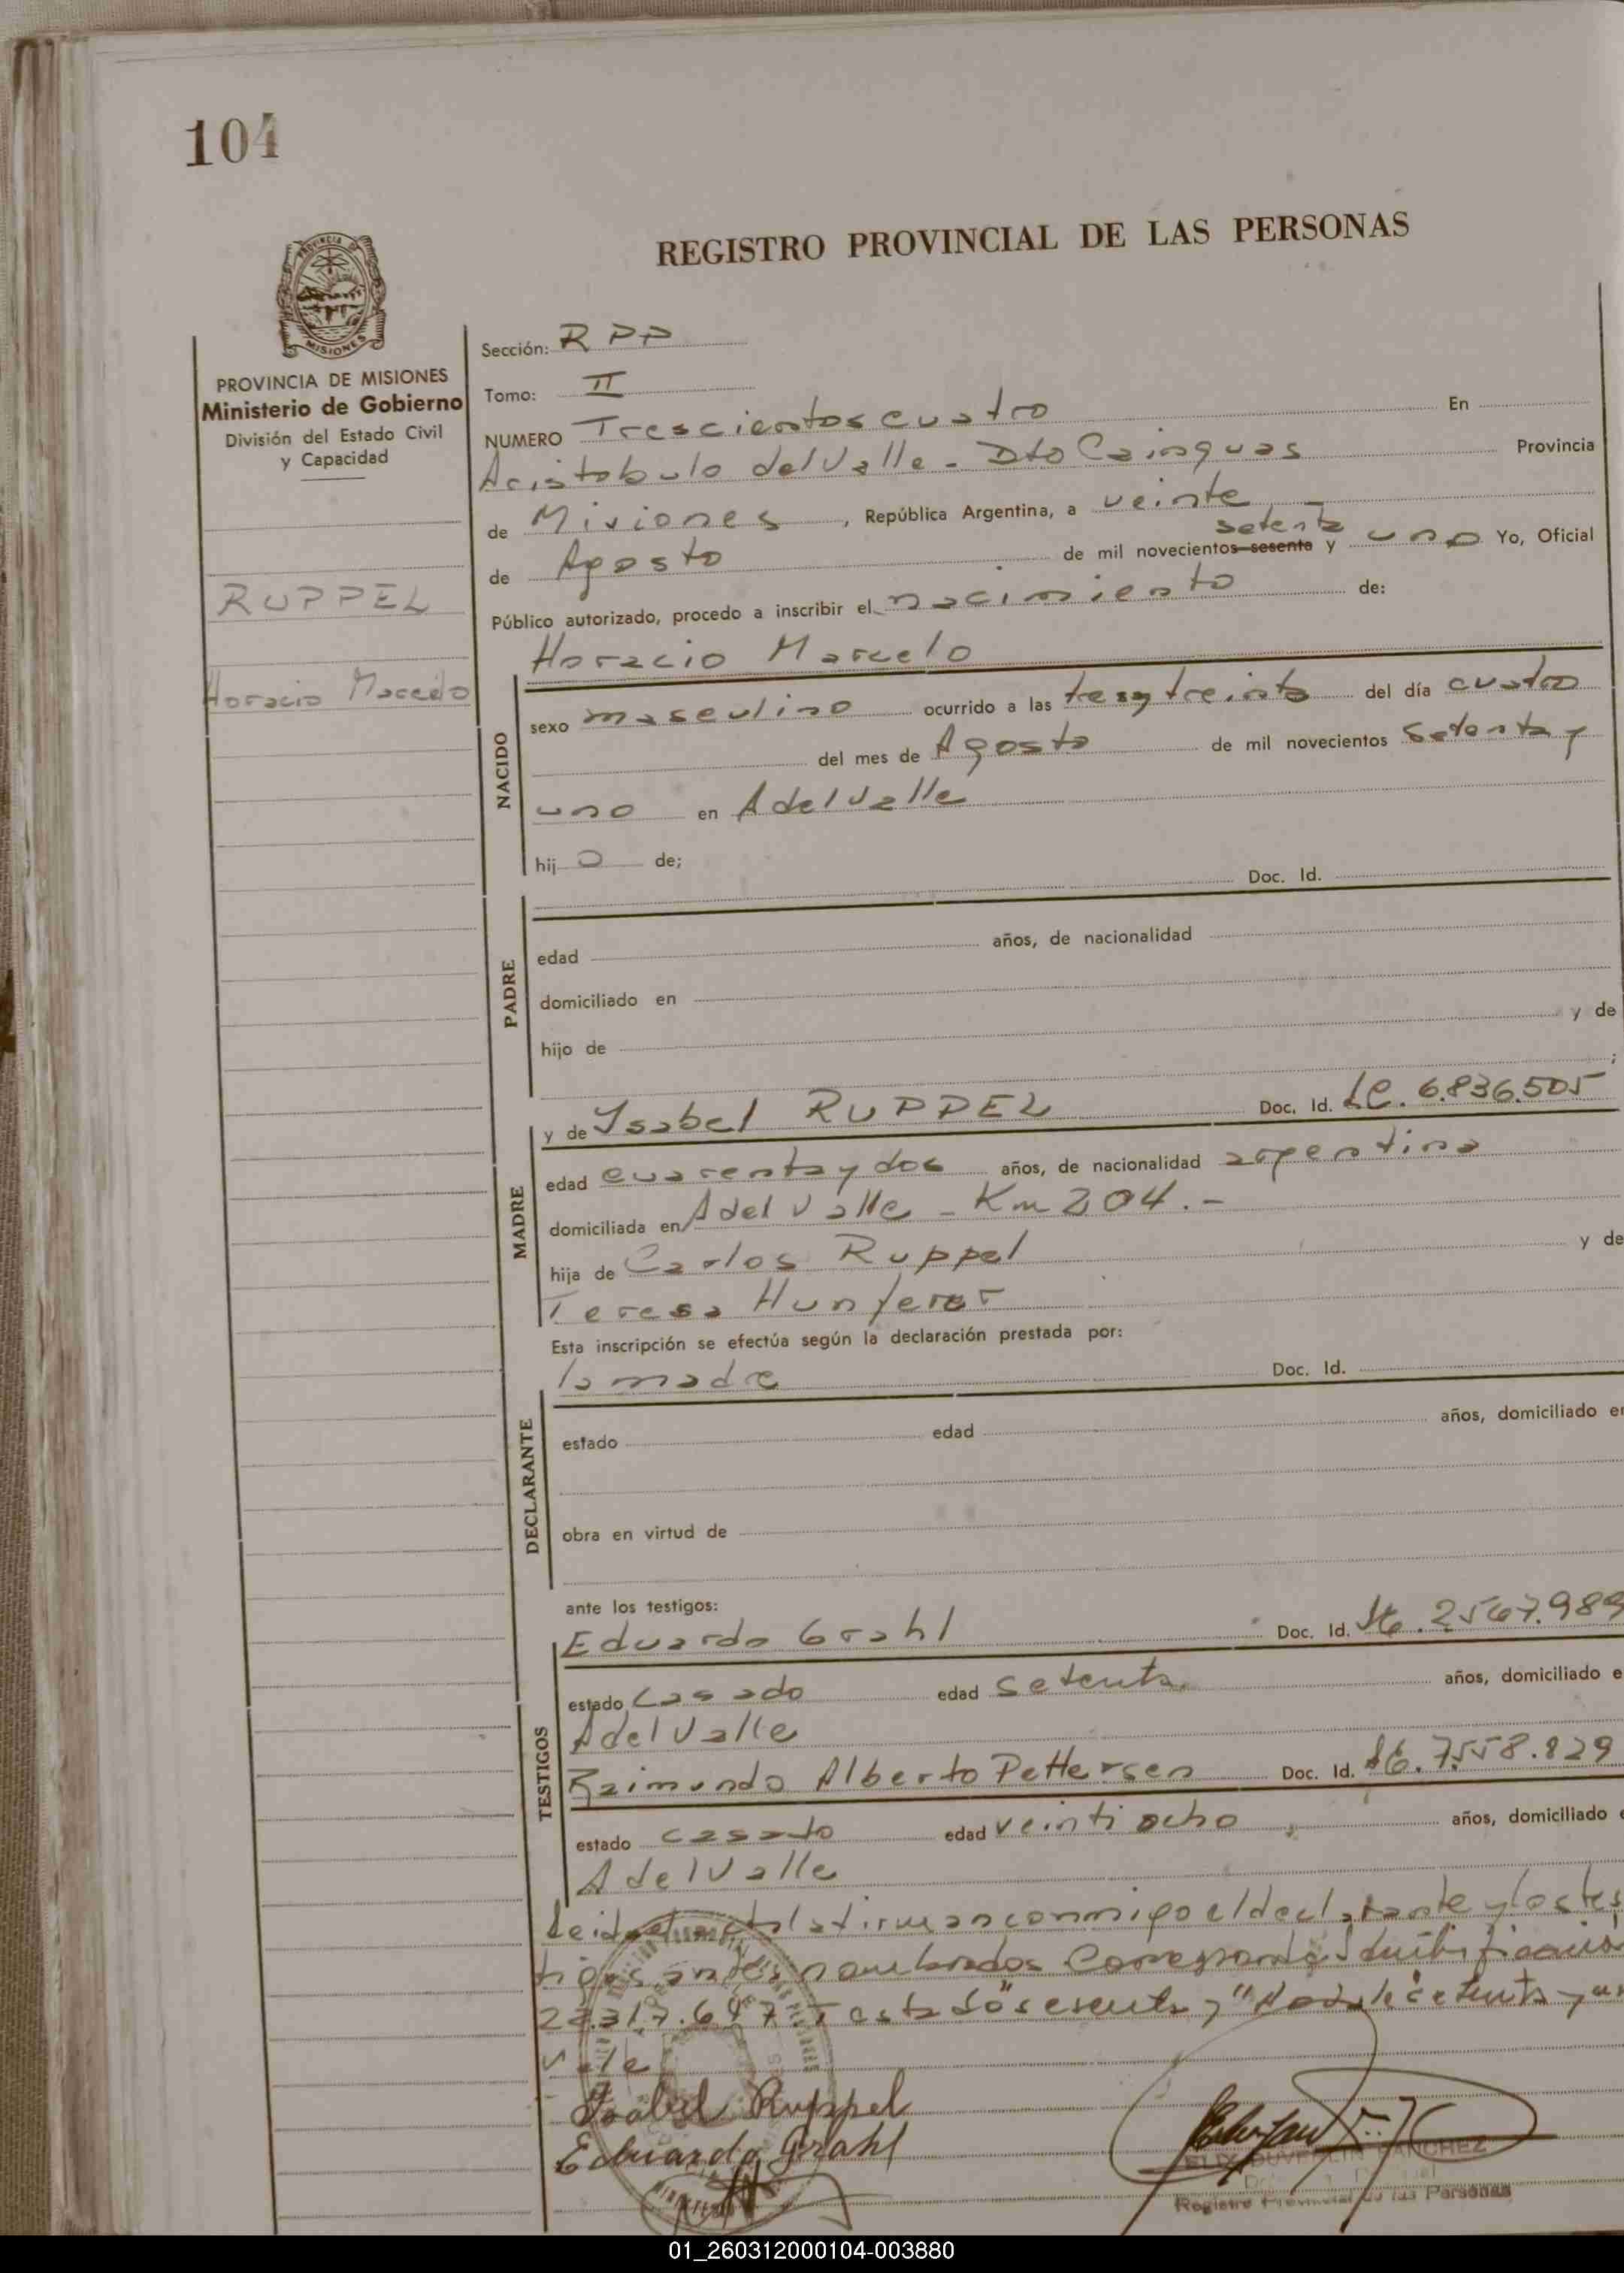 104
REGISTRO PROVINCIAL DE LAS PERSONAS
PROVINCIA DE
MISIONES
PROVINCIA DE MISIONES
Ministerio de Gobierno
División del Estado Civil
y Capacidad
RUPPEL
Horacio Marcelo
Sección: R PP
Tomo: II
NUMERO Trescientos cuatro En
Aristobulo del Valle - Dto Cainguas Provincia
de Misiones, República Argentina, a veinte
setenta
de Agosto de mil novecientos sesenta y uno Yo, Oficial
Público autorizado, procedo a inscribir el nacimiento de:
Horacio Marcelo
NACIDO
sexo masculino ocurrido a las tres y treinta del día cuatro
del mes de Agosto de mil novecientos setenta y
uno en A del Valle
hij o de;
PADRE
Doc. Id.
edad años, de nacionalidad
domiciliado en
hijo de y de
;
MADRE
y de Ysabel RUPPEL Doc. Id. LC. 6.836.505
edad cuarenta y dos años, de nacionalidad argentina
domiciliada en A del Valle - Km 204.-
hija de Carlos Ruppel y de
Teresa
Esta inscripción se efectúa según la declaración prestada por:
la madre Doc. Id.
DECLARANTE
estado edad años, domiciliado en
obra en virtud de
ante los testigos:
TESTIGOS
Eduardo Grahl Doc. Id. 2567.989
estado casado edad setenta años, domiciliado e
A del Valle
Raimundo Alberto Pettersen Doc. Id. 7.558.829
estado casado edad veintiocho años, domiciliado e
A del Valle
Leida el acta la firman conmigo el declarante y los tes
tigos antes nombrados
22.317.697 Testado "sesenta y"
Vale
Isabel Ruppel
Eduardo Grahl
SANCHEZ
Registro Provincial de las Personas
01_260312000104-003880